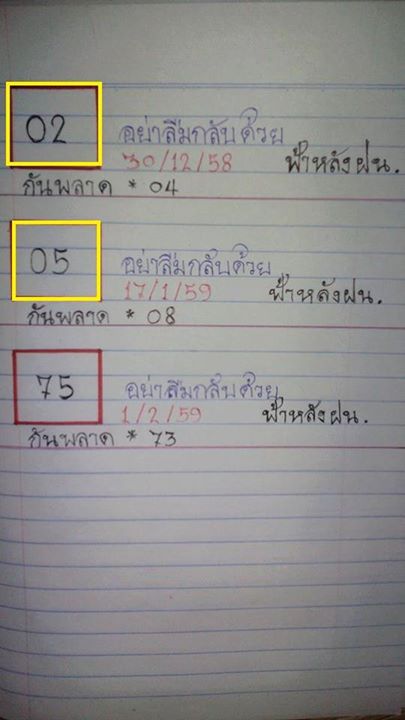 02 อย่าลืมกลับด้วย
30/12/58 ฟ้าหลังฝน.
กันพลาด * 04
05 อย่าลืมกลับด้วย
17/1/59 ฟ้าหลังฝน.
กันพลาด * 08
75 อย่าลืมกลับด้วย
1/2/59 ฟ้าหลังฝน.
กันพลาด * 73